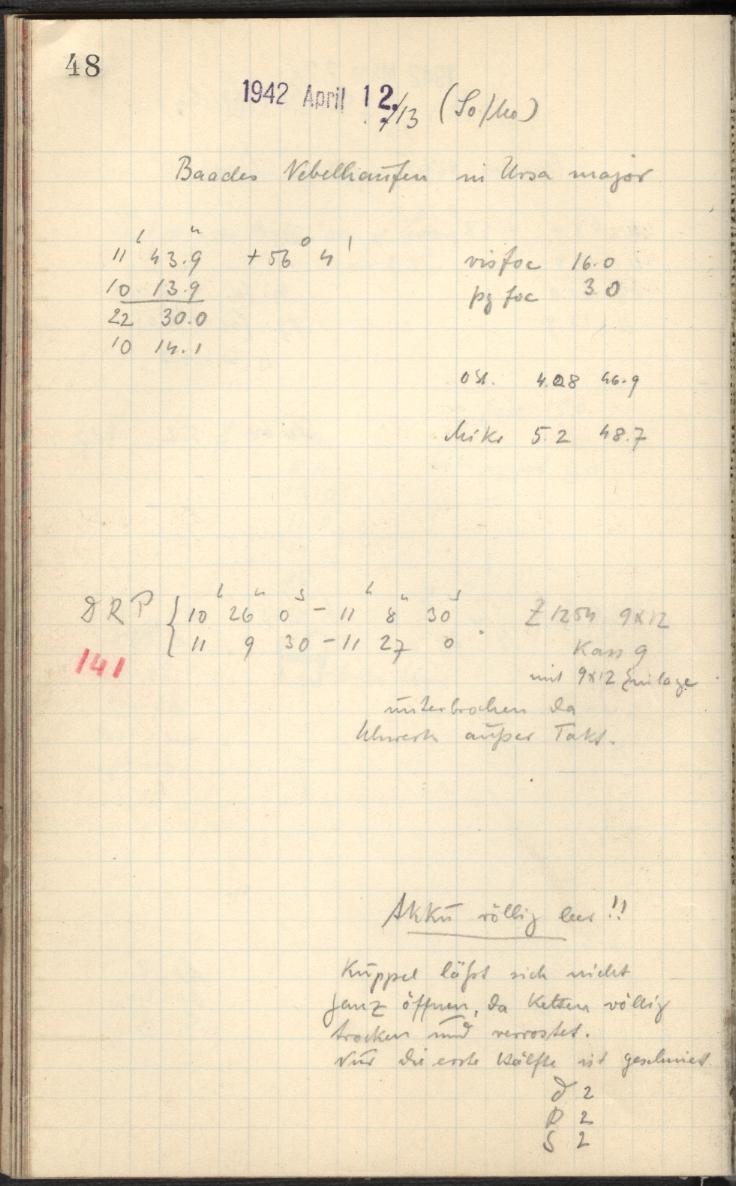 48
1942 April 12./13 (So/Mo)
Baades Nebelhaufen in Ursa major
11 h 43.9 m +56° 4'
visfoc 16.0
10 13.9
pg foc 3.0
22 30.0
10 14.1
Ost. 4.28 46.9
Mikr 5.2 48.7
DRP { 10 h 26 m 0 s - 11 h 8 m 30 s
{ 11 9 30 - 11 27 0 .
Z 1254 9x12
Kass 9
mit 9x12 Einlage
141
unterbrochen da
Uhrwerk außer Takt.
Akku völlig leer!!
Kuppel läßt sich nicht
ganz öffnen, da Ketten völlig
trocken und verrostet.
Nur die erste Hälfte ist geschmiert
D 2
R 2
S 2